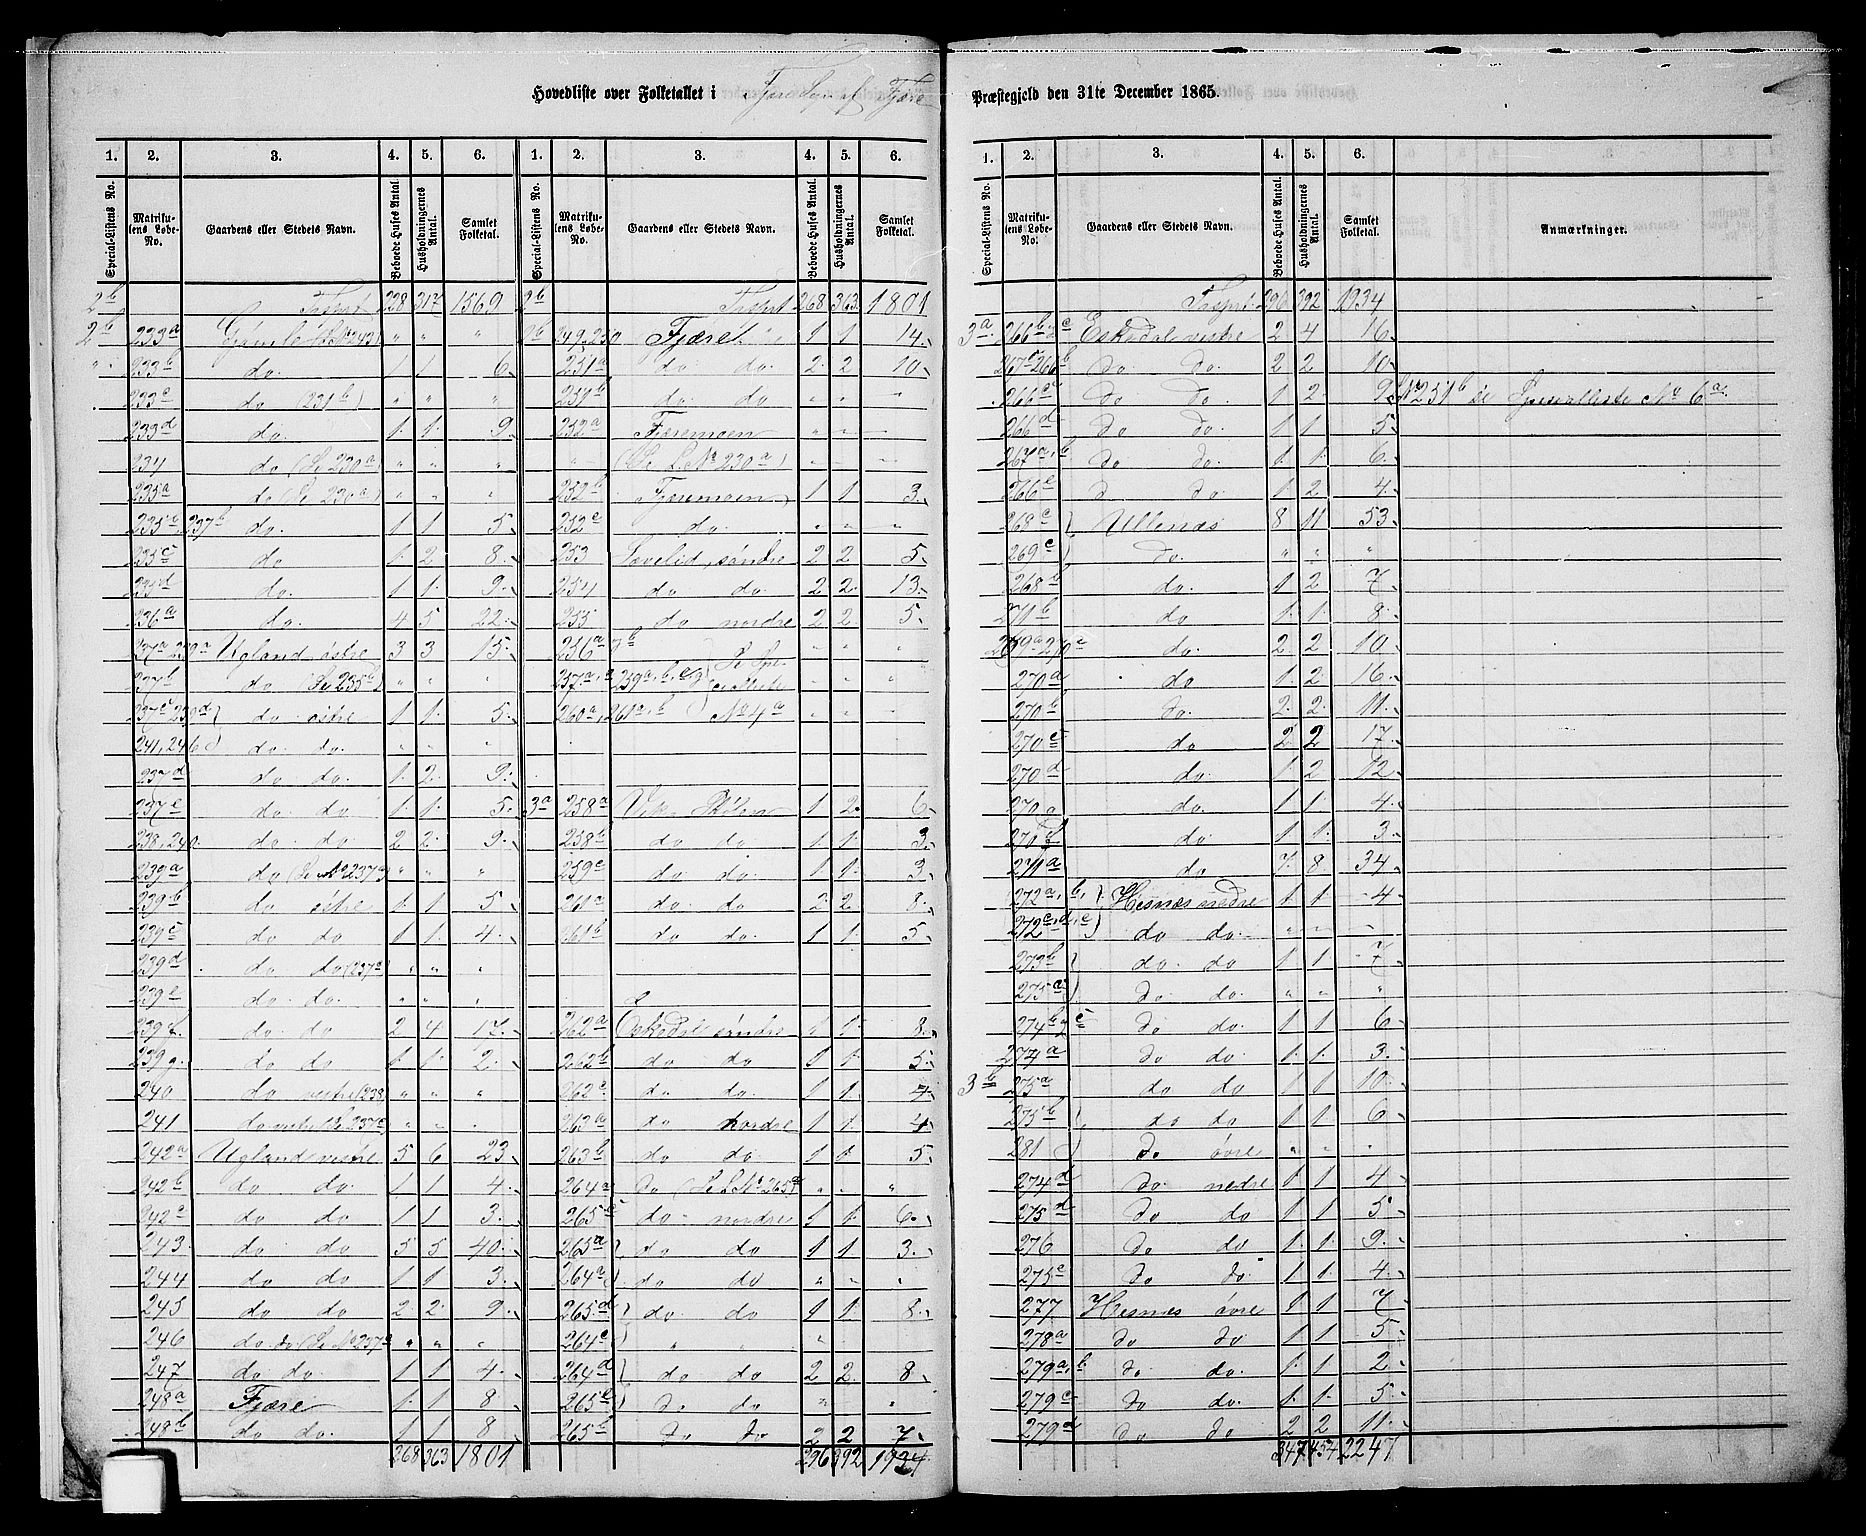 Hovedliste over Folketallet i Fjære Sogn af Fjære
Præstegjeld den 31te December 1865.
1. 2. 3. 4. 5. 6. 1. 2. 3. 4. 5. 6.
Special-Listens No. Matrikulens Løbe-No. Gaardens eller Stedets Navn. Beboede Huses Antal. Husholdningernes Antal. Samlet Folketal.
Special-Listens No. Matrikulens Løbe-No. Gaardens eller Stedets Navn. Beboede Huses Antal. Husholdningernes Antal. Samlet Folketal.
2b Trspt 228 317 1569
2b 233a " " "
" 233b do. 1 1 6.
233c do (231b) " " "
233d do. 1. 1. 9.
234 do (Se 230a) " " "
235a do (Se 230a) " " "
235b, 237b do. 1 1 5.
235c do 1. 2 8.
235d do. 1 1. 9.
236a do. 4 5 22.
237a 239a Ugland östre 3 3 15.
237b do (Se 235b) " " "
237c 239d do östre 1 1. 5.
241, 246 do. do. " " "
237d do do. 1. 2. 9.
237e do do 1. 1. 5.
238, 240. do do 2 2. 9.
239a do (Se No 237a) " " "
239b do östre 1 1 5.
239c do do 1 1. 4.
239d do do (237c) " " "
239e do. do. " " "
239f. do do 2 4 17.
239g. do do 1 1. 2.
240 do vestre (238) " " "
241 do vestre (Se 237c) " " "
242a Ugland vestre 5 6 23
242b do do. 1 1 4.
242c do do 1 1 3.
243. do do 5 5 40.
244 do do 1 1 3.
245 do do 2 2. 9.
246 do do (Se No 237c) " " "
247 do do. 1 1 4.
248a Fjære 1. 1 8
248b do do. 1 1 8
268 363 1801
2b Trspt 268 363. 1801
2b 249, 250 Fjære 1 1 14.
251a do do 2. 2 10.
251b do. do " " "
252a Fjæremoen " " "
(Se L.No 230a) " " "
252b Fjæremoen 1 1 3.
252c do. " " "
253 søndre 2 2. 5.
254 do do. 2 2. 13.
255 do nordre 2 2. 5.
256a " " "
257a, 259a, b, c, g (Se Specialliste " " "
260a, 261a, b No 4a " " "
3a 258a Vik 1 2. 6.
258b do do 1 1. 3.
259c do. do. 1 1. 3.
261a do. do 2. 2. 8.
261b do do. 1 1. 5.
262a Eskedal søndre 1 1. 8.
262b do do 1 1. 5.
262c do do. 1 1. 7.
263a do nordre 1 1. 4.
263b do do. 1 1 5.
264a do (Se L.No 265a) " " "
265c do nordre 1 1. 6.
265a do do 1 1 3.
264a do do " " "
265.d do. do 1 1. 8.
264c " "
264d do do 2 2. 8
265e do do " "
265b do do 2 2 7.
296 392 1934
1. 2. 3. 4. 5. 6.
Special-Listens No. Matrikulens Løbe-No. Gaardens eller Stedets Navn. Beboede Huses Antal. Husholdningernes Antal. Samlet Folketal. Anmærkninger.
Trspt. 296 392 1934
3a. 266b, c Eskedal vestre 2 4 16.
267c 266b do do. 2 2 10.
266c do do. 1 2 9. No 251b se Specialliste No 6a
266d do do. 1 1 5.
267a, b do do. 1. 1. 6.
266e do do. 1 2 4.
268c Ullenæs 8 11 53.
269c do. " " "
268b do. 1 2 7.
271b do 1. 1 8.
269a 270e do. 2. 2 10.
270a do 1. 2. 16.
270b do. 2. 2. 11.
270c do 2. 2 17.
270d do. 1. 2 12.
270 do. 1 1. 4.
270f do 1 1. 3.
271a do 7. 8. 34.
272a, b, Hesnæs nedre 1 1 4
272c, d, e do do. " " "
273b do. do 1 1 7.
275c do do. " " "
274b, c do do. 1 1 6
274a do do. 1. 1. 3.
3b 275a do do 1 1 10.
275b do do 1 1. 6.
281 do øvre " " "
274d do. nedre 1 1 4
275d do do 1 1 5.
276 do do 1. 1. 9.
275e do do. 1 1. 4.
277 Hesnæs øvre 1 1 7
278a do do 1 1 5.
279a, b do. do. 1. 1 2.
279c do do. 1 1. 5.
279d do do 2 2 11.
347 454 2247